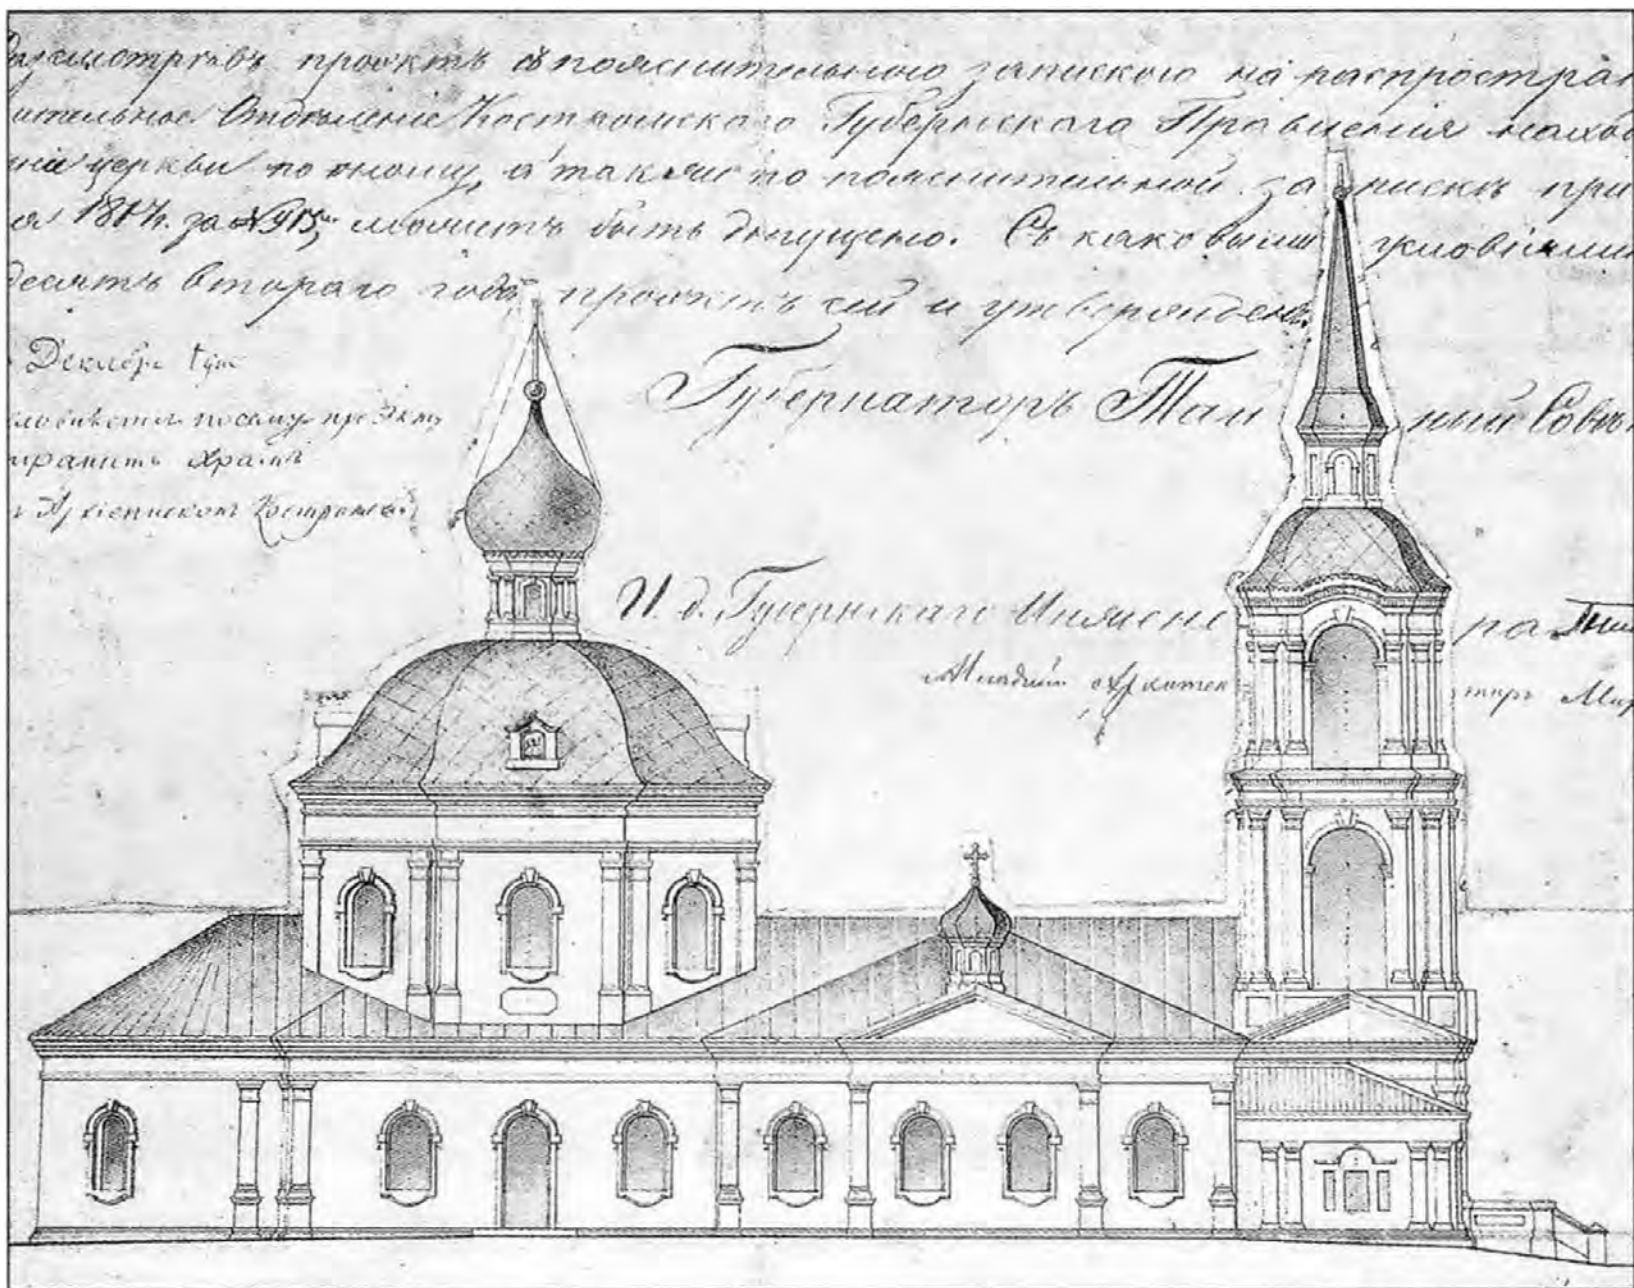 Разсмотрѣвъ проэктъ съ пояснительною запискою на распростран
ительное Отдѣленіе Костромскаго Губернскаго Правленія нахо
ніе церкви по оному, а также и по пояснительной запискѣ при
за № 915, можетъ быть допущено. Съ каковыми условіями
десятъ втораго года проэктъ сей и утвержденъ.
Декабря
Губернаторъ Тайный Совѣ
по сему проэкту
храмъ
Архіепископъ Костромской
И. д. Губернскаго Инженера
Младшій Архитекторъ Мир